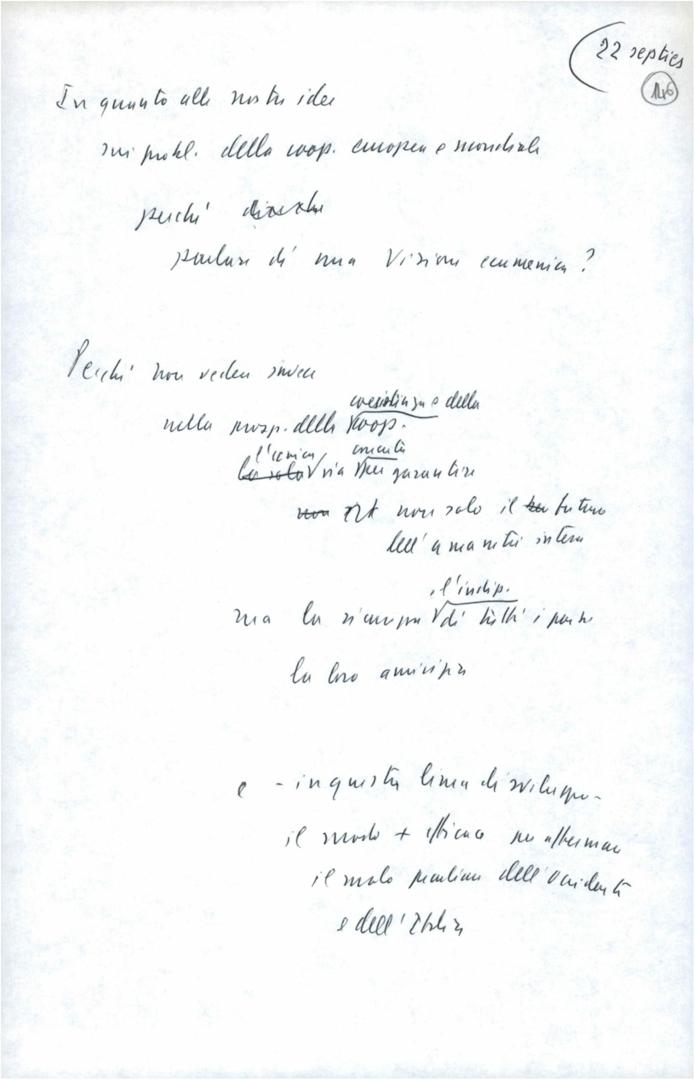 22 septies
146
In quanto alle nostre idee
sui probl. della coop. europea e mondiale
perché
parlare di una visione ecumenica?
Perché non vedere invece
coesistenza e della
nella prosp. della coop.
l'unica
la sola via per garantire
non solo il futuro
dell'umanità intera
e l'indip.
ma la sicurezza di tutti i paesi
la loro amicizia
e - in questa linea di sviluppo -
il modo + efficace per affermare
il ruolo peculiare dell'Occidente
e dell'Italia